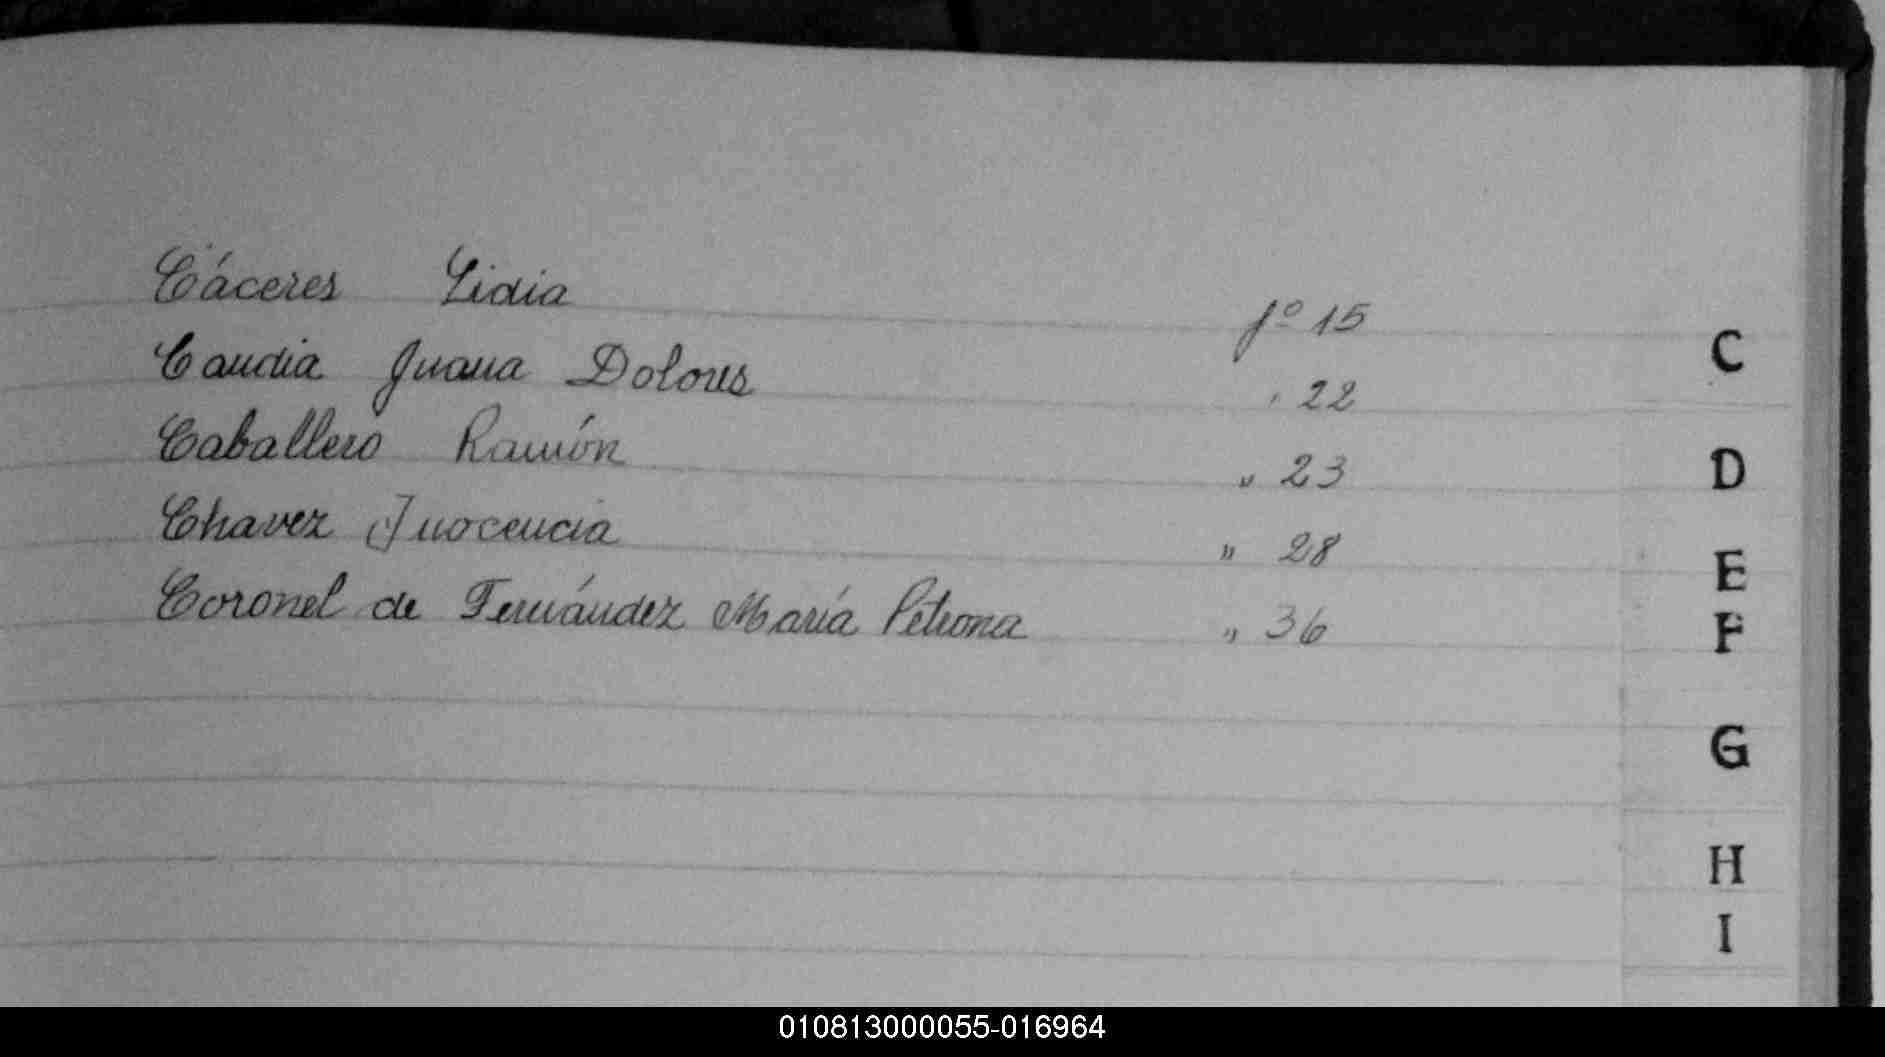 Cáceres Lidia fº 15
Candia Juana Dolores " 22
Caballero Ramón " 23
Chavez Inocencia " 28
Coronel de Fernández María Petrona " 36
C
D
E
F
G
H
I
010813000055-016964